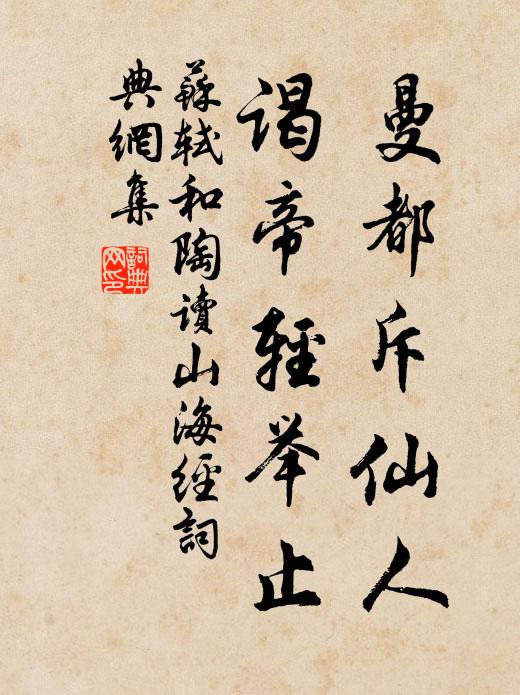 曼都斥仙人
谒帝轻举止
蘇軾和陶讀山海經詞
典網集
詞典
网印